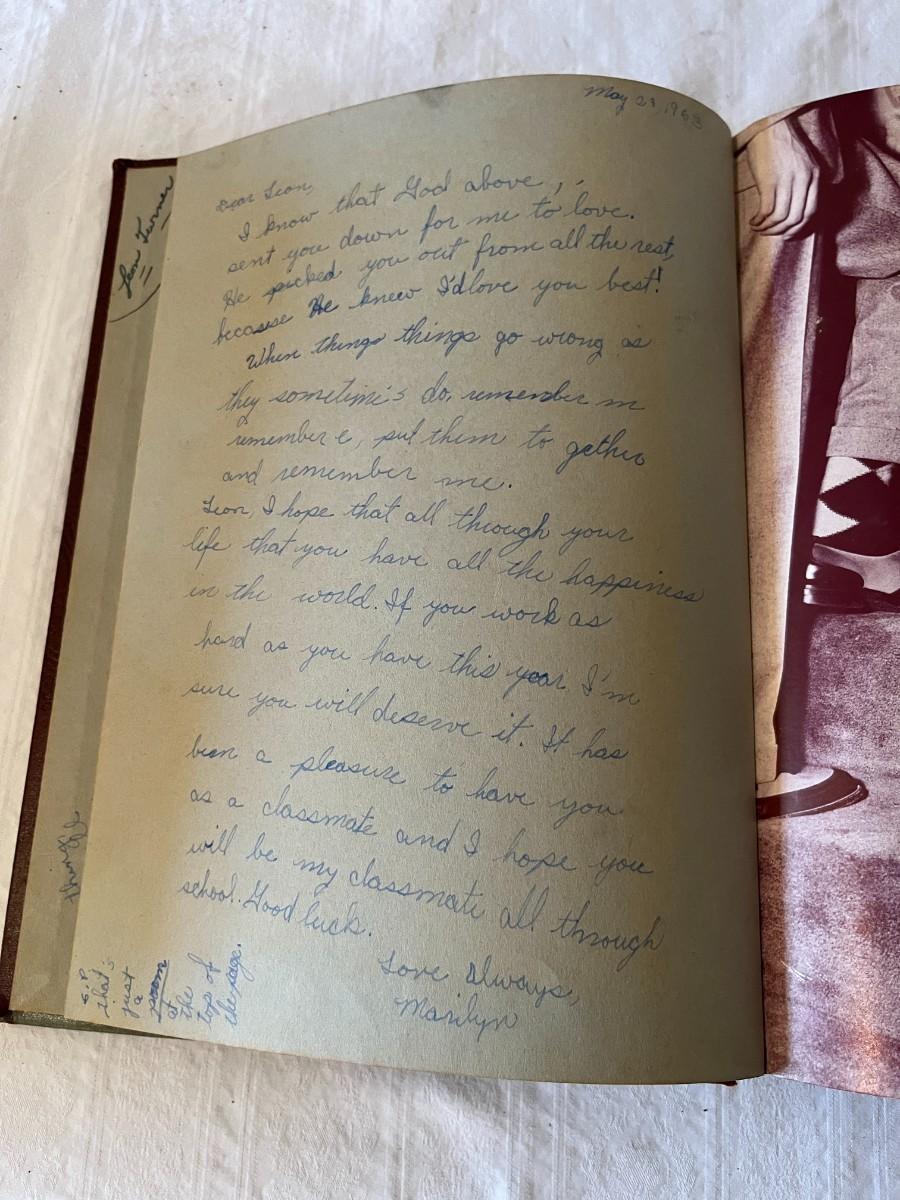 May 23, 1963
Dear Leon,
I know that God above,
sent you down for me to love.
He picked you out from all the rest,
because He knew I'd love you best!
When things things go wrong as
they sometimes do, remember m
remember e, put them to gether
and remember me.
Leon, I hope that all through your
life that you have all the happiness
in the world. If you work as
hard as you have this year I'm
sure you will deserve it. It has
been a pleasure to have you
as a classmate and I hope you
will be my classmate all through
school. Good luck.
Love always,
Marilyn
S.P.
that's
just
a
poem
at
the
top of
the page.
Leon Turner